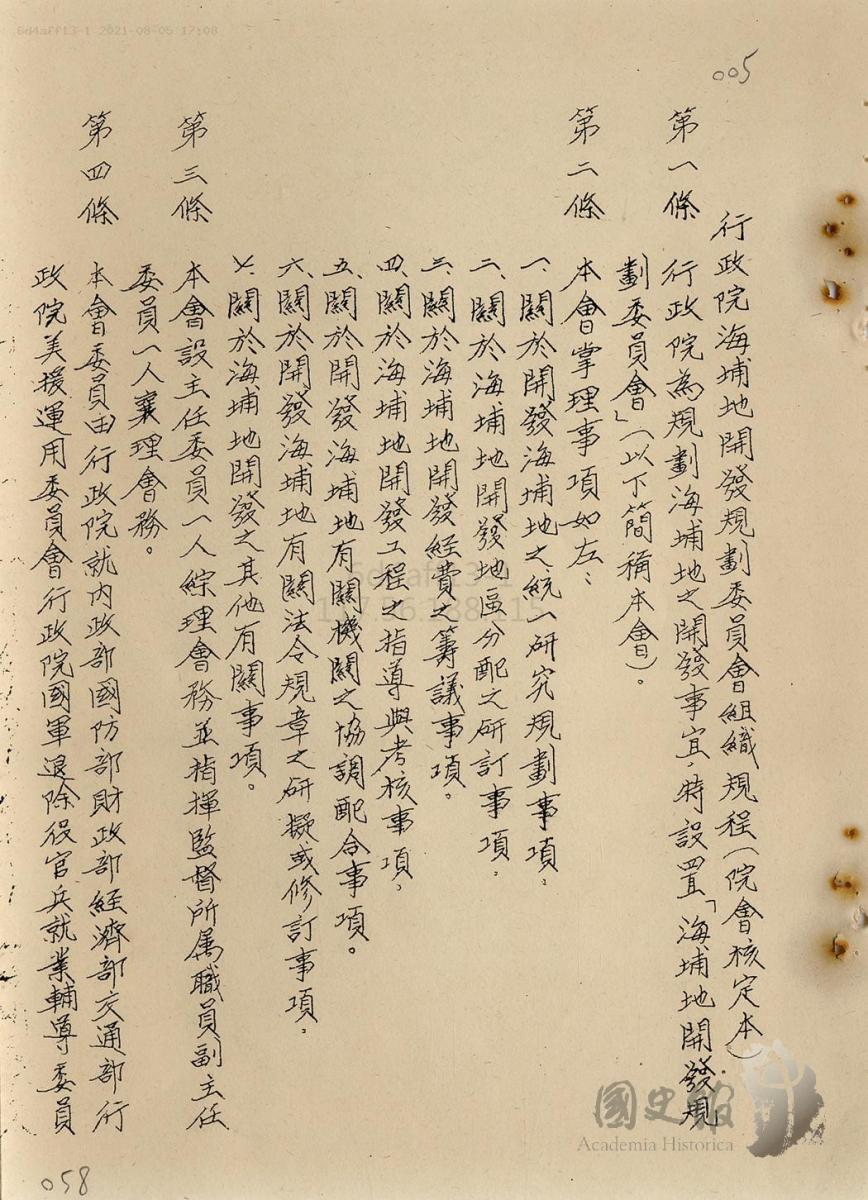 6d4aff13-1 2021-08-05 17:08
005
行政院海埔地開發規劃委員會組織規程(院會核定本)
第一條 行政院為規劃海埔地之開發事宜,特設置「海埔地開發規
劃委員會」(以下簡稱本會)。
第二條 本會掌理事項如左:
一、關於開發海埔地之統一研究規劃事項。
二、關於海埔地開發地區分配之研訂事項。
三、關於海埔地開發經費之籌議事項。
四、關於海埔地開發工程之指導與考核事項。
五、關於開發海埔地有關機關之協調配合事項。
六、關於開發海埔地有關法令規章之研擬或修訂事項。
七、關於海埔地開發之其他有關事項。
第三條 本會設主任委員一人綜理會務並指揮監督所屬職員副主任
委員一人襄理會務。
第四條 本會委員由行政院就內政部國防部財政部經濟部交通部行
政院美援運用委員會行政院國軍退除役官兵就業輔導委員
058
國史館
Academia Historica